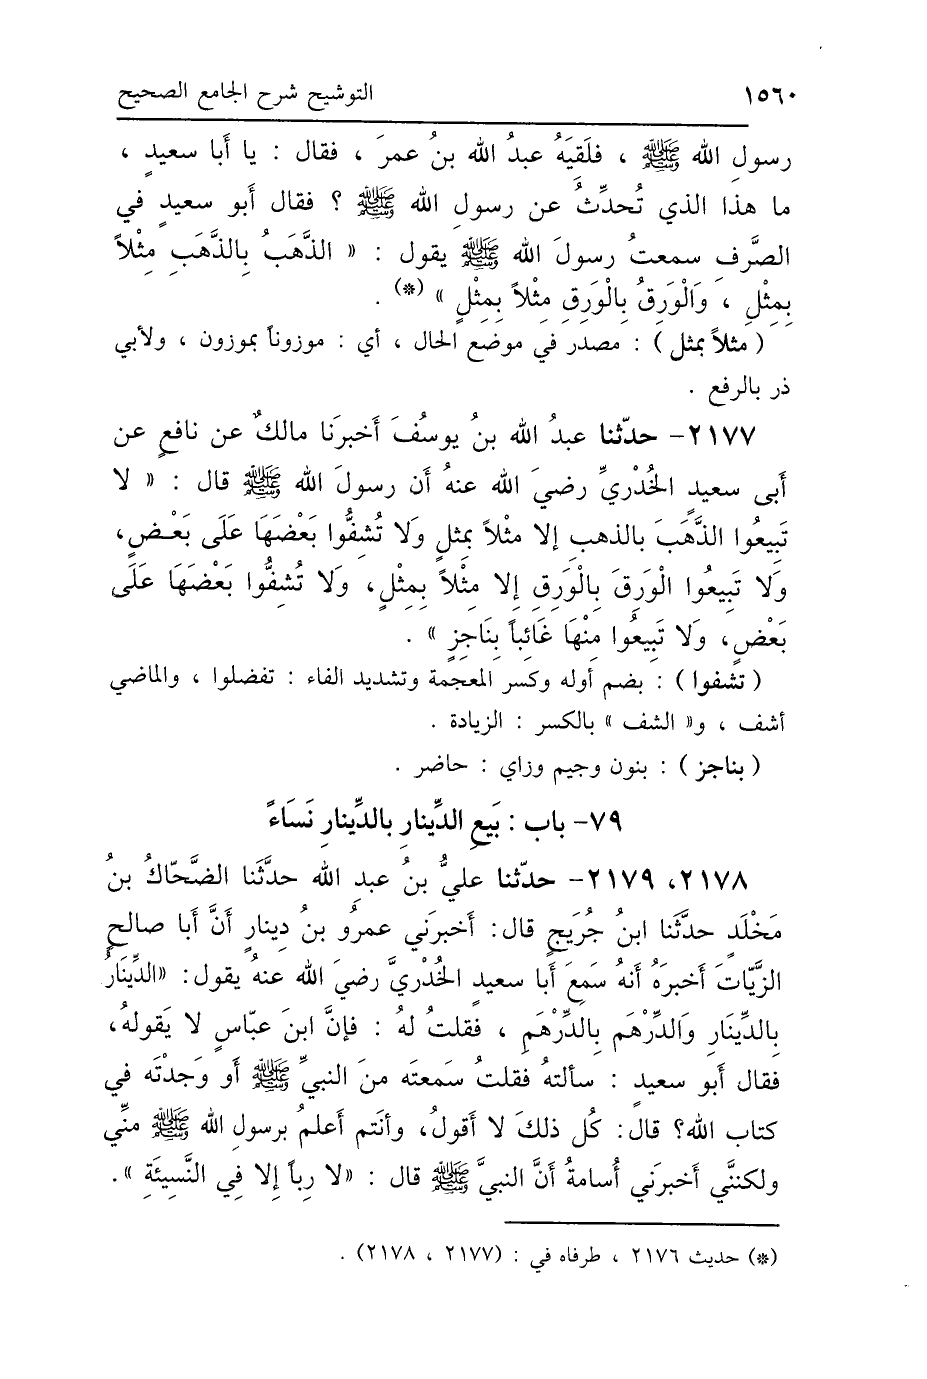 ١٥٦٠ التوشيح شرح الجامع الصحيح
رسولِ الله ﷺ ، فلَقِيَهُ عبدُ الله بنُ عمرَ ، فقال : يا أَبا سعيدٍ ،
ما هذا الذي تُحدِّثُ عن رسولِ الله ﷺ ؟ فقال أَبو سعيدٍ في
الصَّرف سمعتُ رسولَ الله ﷺ يقول : « الذَّهَبُ بِالذَّهَبِ مِثْلاً
بِمِثْلٍ ، وَالْوَرِقُ بِالْوَرِقِ مِثْلاً بِمِثْلٍ » (*) .
( مثلاً بمثل ) : مصدر في موضع الحال ، أي : موزوناً بموزون ، ولأبي
ذر بالرفع .
٢١٧٧- حدّثنا عبدُ الله بنُ يوسُفَ أَخبرَنا مالكٌ عن نافعٍ عن
أَبى سعيدٍ الخُدْريِّ رضيَ الله عنهُ أَن رسولَ الله ﷺ قال : « لا
تَبِيعُوا الذَّهَبَ بالذهب إلا مثْلاً بمِثلٍ وَلا تُشِفُّوا بَعْضَهَا عَلَى بَعْضٍ،
وَلا تَبِيعُوا الْوَرِقَ بِالْوَرِقِ إلا مِثْلاً بِمِثْلٍ، وَلا تُشِفُّوا بَعْضَهَا عَلَى
بَعْضٍ، وَلا تَبِيعُوا مِنْهَا غَائِباً بِنَاجِزٍ » .
( تشفوا ) : بضم أوله وكسر المعجمة وتشديد الفاء : تفضلوا ، والماضي
أشف ، و« الشف » بالكسر : الزيادة .
( بناجز ) : بنون وجيم وزاي : حاضر .
٧٩- باب : بَيعِ الدِّينارِ بالدِّينارِ نَسَاءً
٢١٧٨، ٢١٧٩- حدّثنا عليُّ بنُ عبدِ الله حدَّثَنا الضَّحّاكُ بنُ
مَخْلَدٍ حدَّثَنا ابنُ جُرَيجٍ قال: أَخبرَني عمرُو بنُ دِينارٍ أَنَّ أَبا صالحٍ
الزَّيّاتَ أَخبرَهُ أَنهُ سَمِعَ أَبا سعيدٍ الخُدْريَّ رضيَ الله عنهُ يقول: «الدِّينَارُ
بالدِّينَارِ وَالدِّرْهَم بِالدِّرْهَمِ ، فقلتُ لهُ : فإنَّ ابنَ عبّاسٍ لا يَقولهُ،
فقال أَبو سعيد : سألتهُ فقلتُ سَمعتَه منَ النبيِّ ﷺ أَو وَجدْتَه في
كتاب الله؟ قال: كُل ذلكَ لا أَقولُ، وأَنتم أَعلمُ برسولِ الله ﷺ منّي
ولكننَّي أَخبرَني أُسامةُ أَنَّ النبيَّ ﷺ قال : «لا رِباً إلا فِي النَّسِيئَةِ ».
(*) حديث ٢١٧٦ ، طرفاه في : (٢١٧٧ ، ٢١٧٨) .